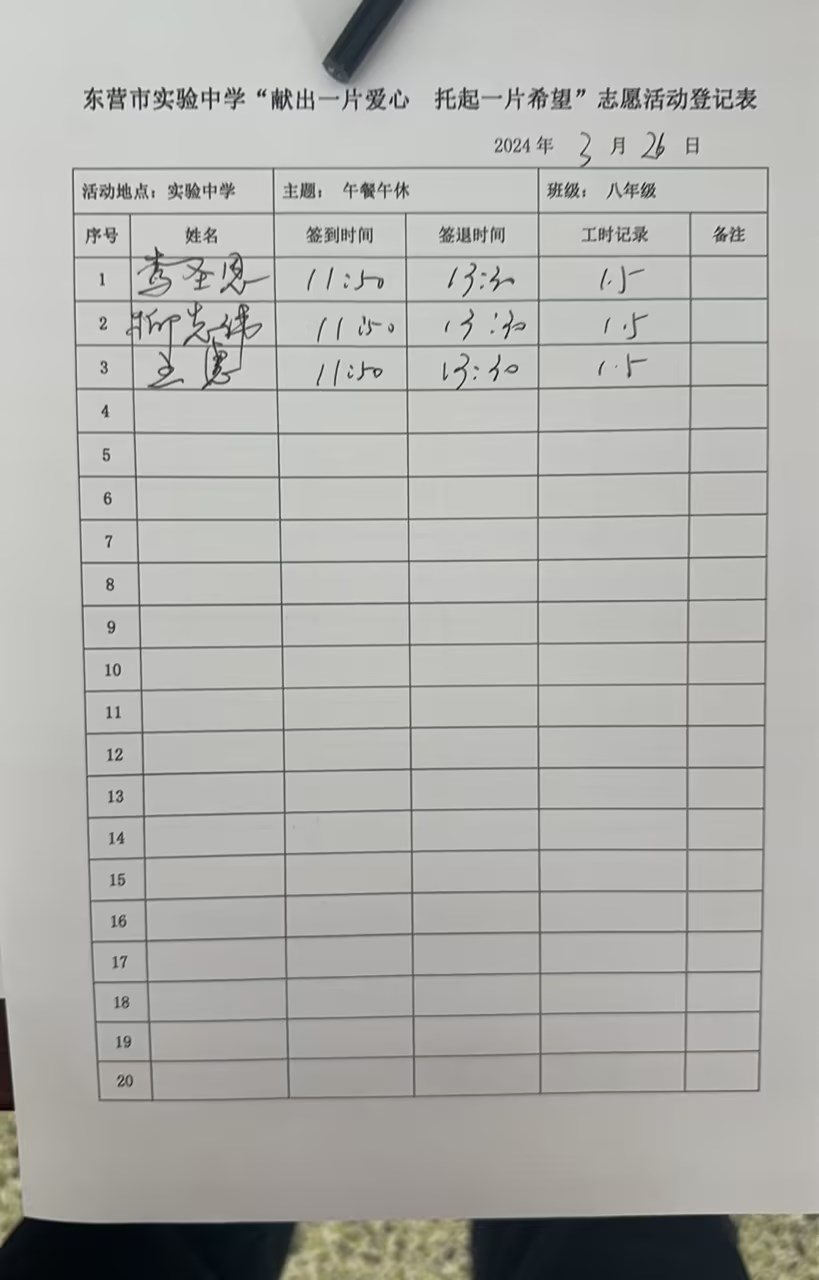 东营市实验中学“献出一片爱心 托起一片希望”志愿活动登记表
2024 年 3 月 26 日
活动地点：实验中学 主题： 午餐午休 班级： 八年级
序号 姓名 签到时间 签退时间 工时记录 备注
1 李圣恩 11:50 13:30 1.5
2 柳先伟 11:50 13:30 1.5
3 王惠 11:50 13:30 1.5
4
5
6
7
8
9
10
11
12
13
14
15
16
17
18
19
20